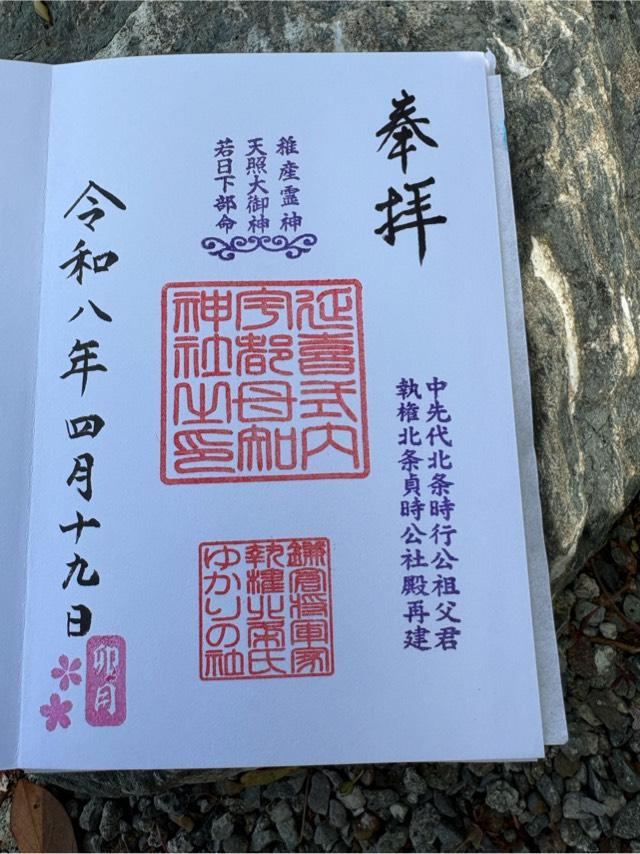 奉拝
稚産霊神
天照大御神
若日下部命
中先代北条時行公祖父君
執権北条貞時公社殿再建
延喜式内
宇都母知
神社之印
鎌倉将軍家
執権北条氏
ゆかりの社
令和八年四月十九日
卯月